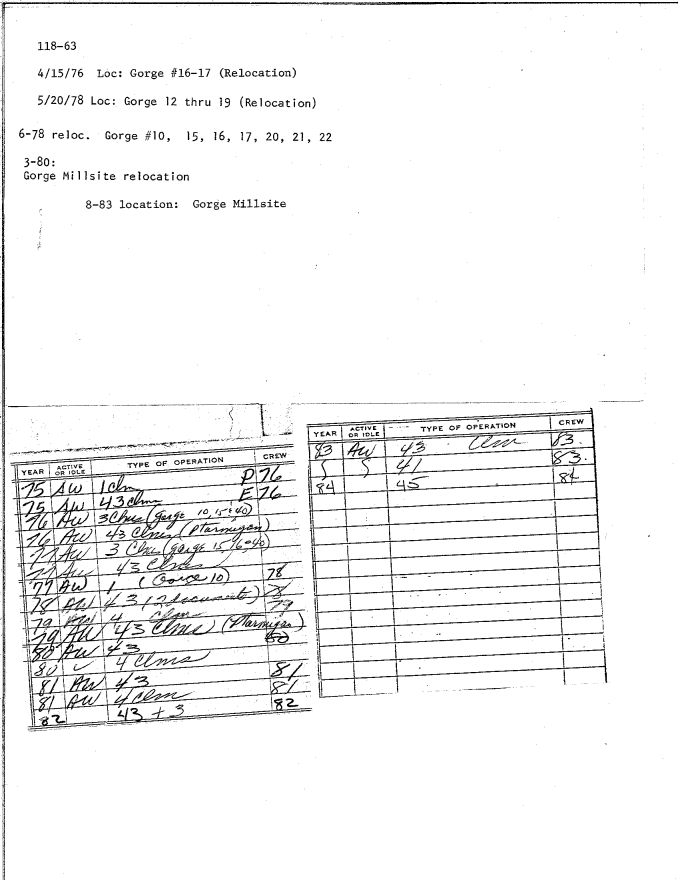 118-63
4/15/76 Loc: Gorge #16-17 (Relocation)
5/20/78 Loc: Gorge 12 thru 19 (Relocation)
6-78 reloc. Gorge #10, 15, 16, 17, 20, 21, 22
3-80:
Gorge Millsite relocation
8-83 location: Gorge Millsite
YEAR ACTIVE OR IDLE TYPE OF OPERATION CREW
75 AW 1 clm P 76
75 AW 43 clm E 76
76 AW 3 Clms (Gorge 10, 15 & 40)
76 AW 43 Clms (Ptarmigan)
77 AW 3 Clms (Gorge 15, 16 & 40)
77 AW 43 Clms
77 AW 1 (Gorge 10) 78
78 AW 43 (2 documents) 78
79 AW 4 Clm 79
79 AW 43 Clms (Ptarmigan)
80 AW 43 80
80 4 Clms
81 AW 43 81
81 AW 4 Clm 81
82 43 + 3 82
YEAR ACTIVE OR IDLE TYPE OF OPERATION CREW
83 AW 43 Clm 83
41 83.
84 45 84